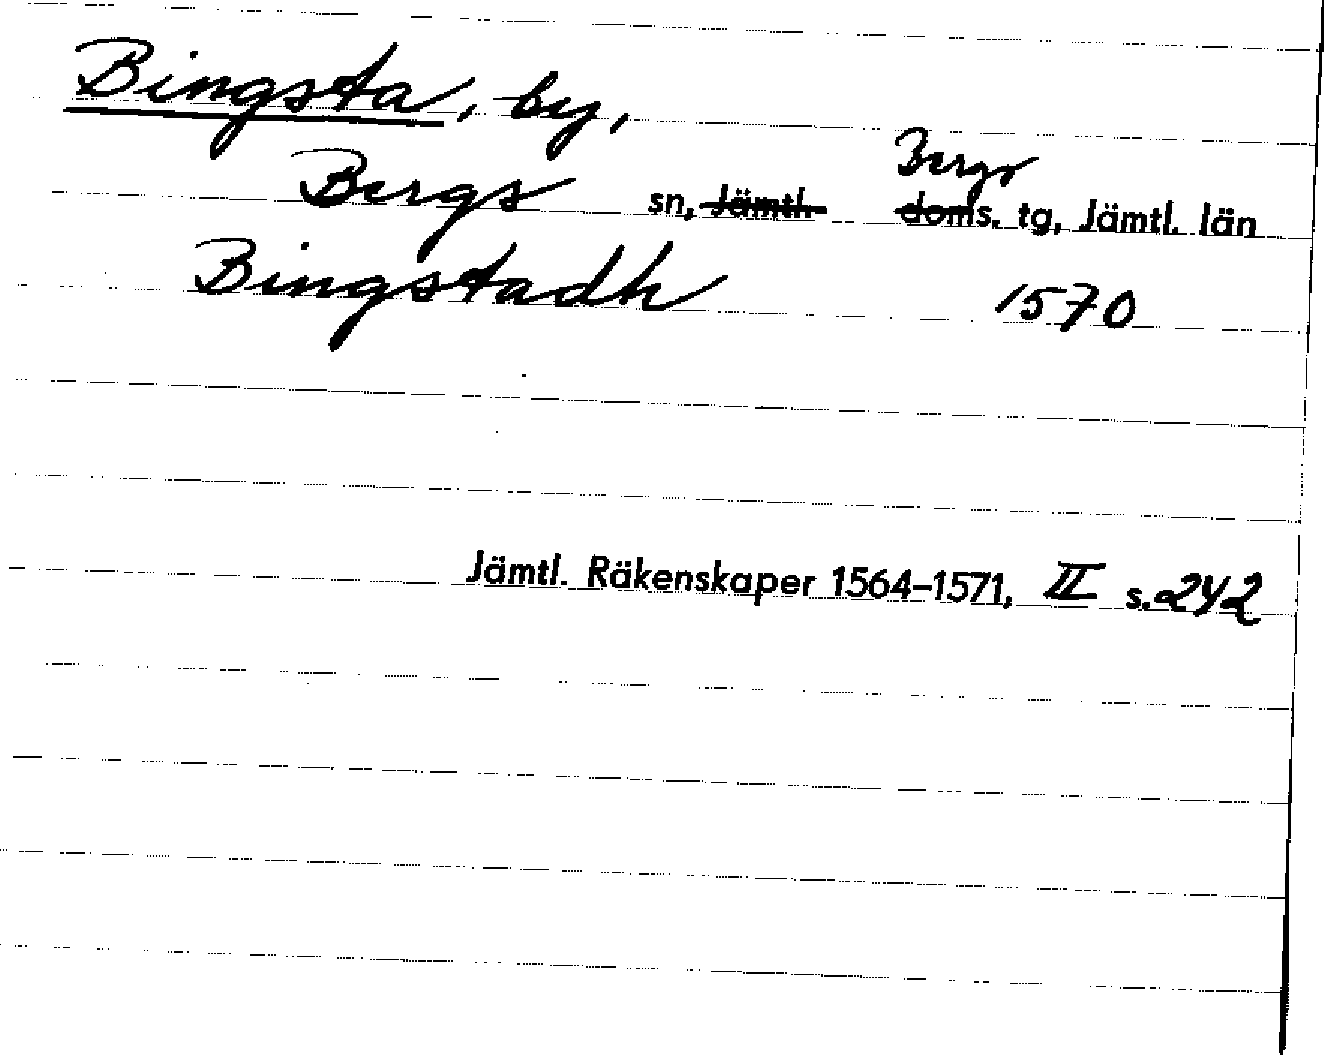 Bingsta, by,
Bergs sn, Jämtl. Bergs doms. tg, Jämtl. län
Bingstadh 1570
Jämtl. Räkenskaper 1564-1571, II s. 242